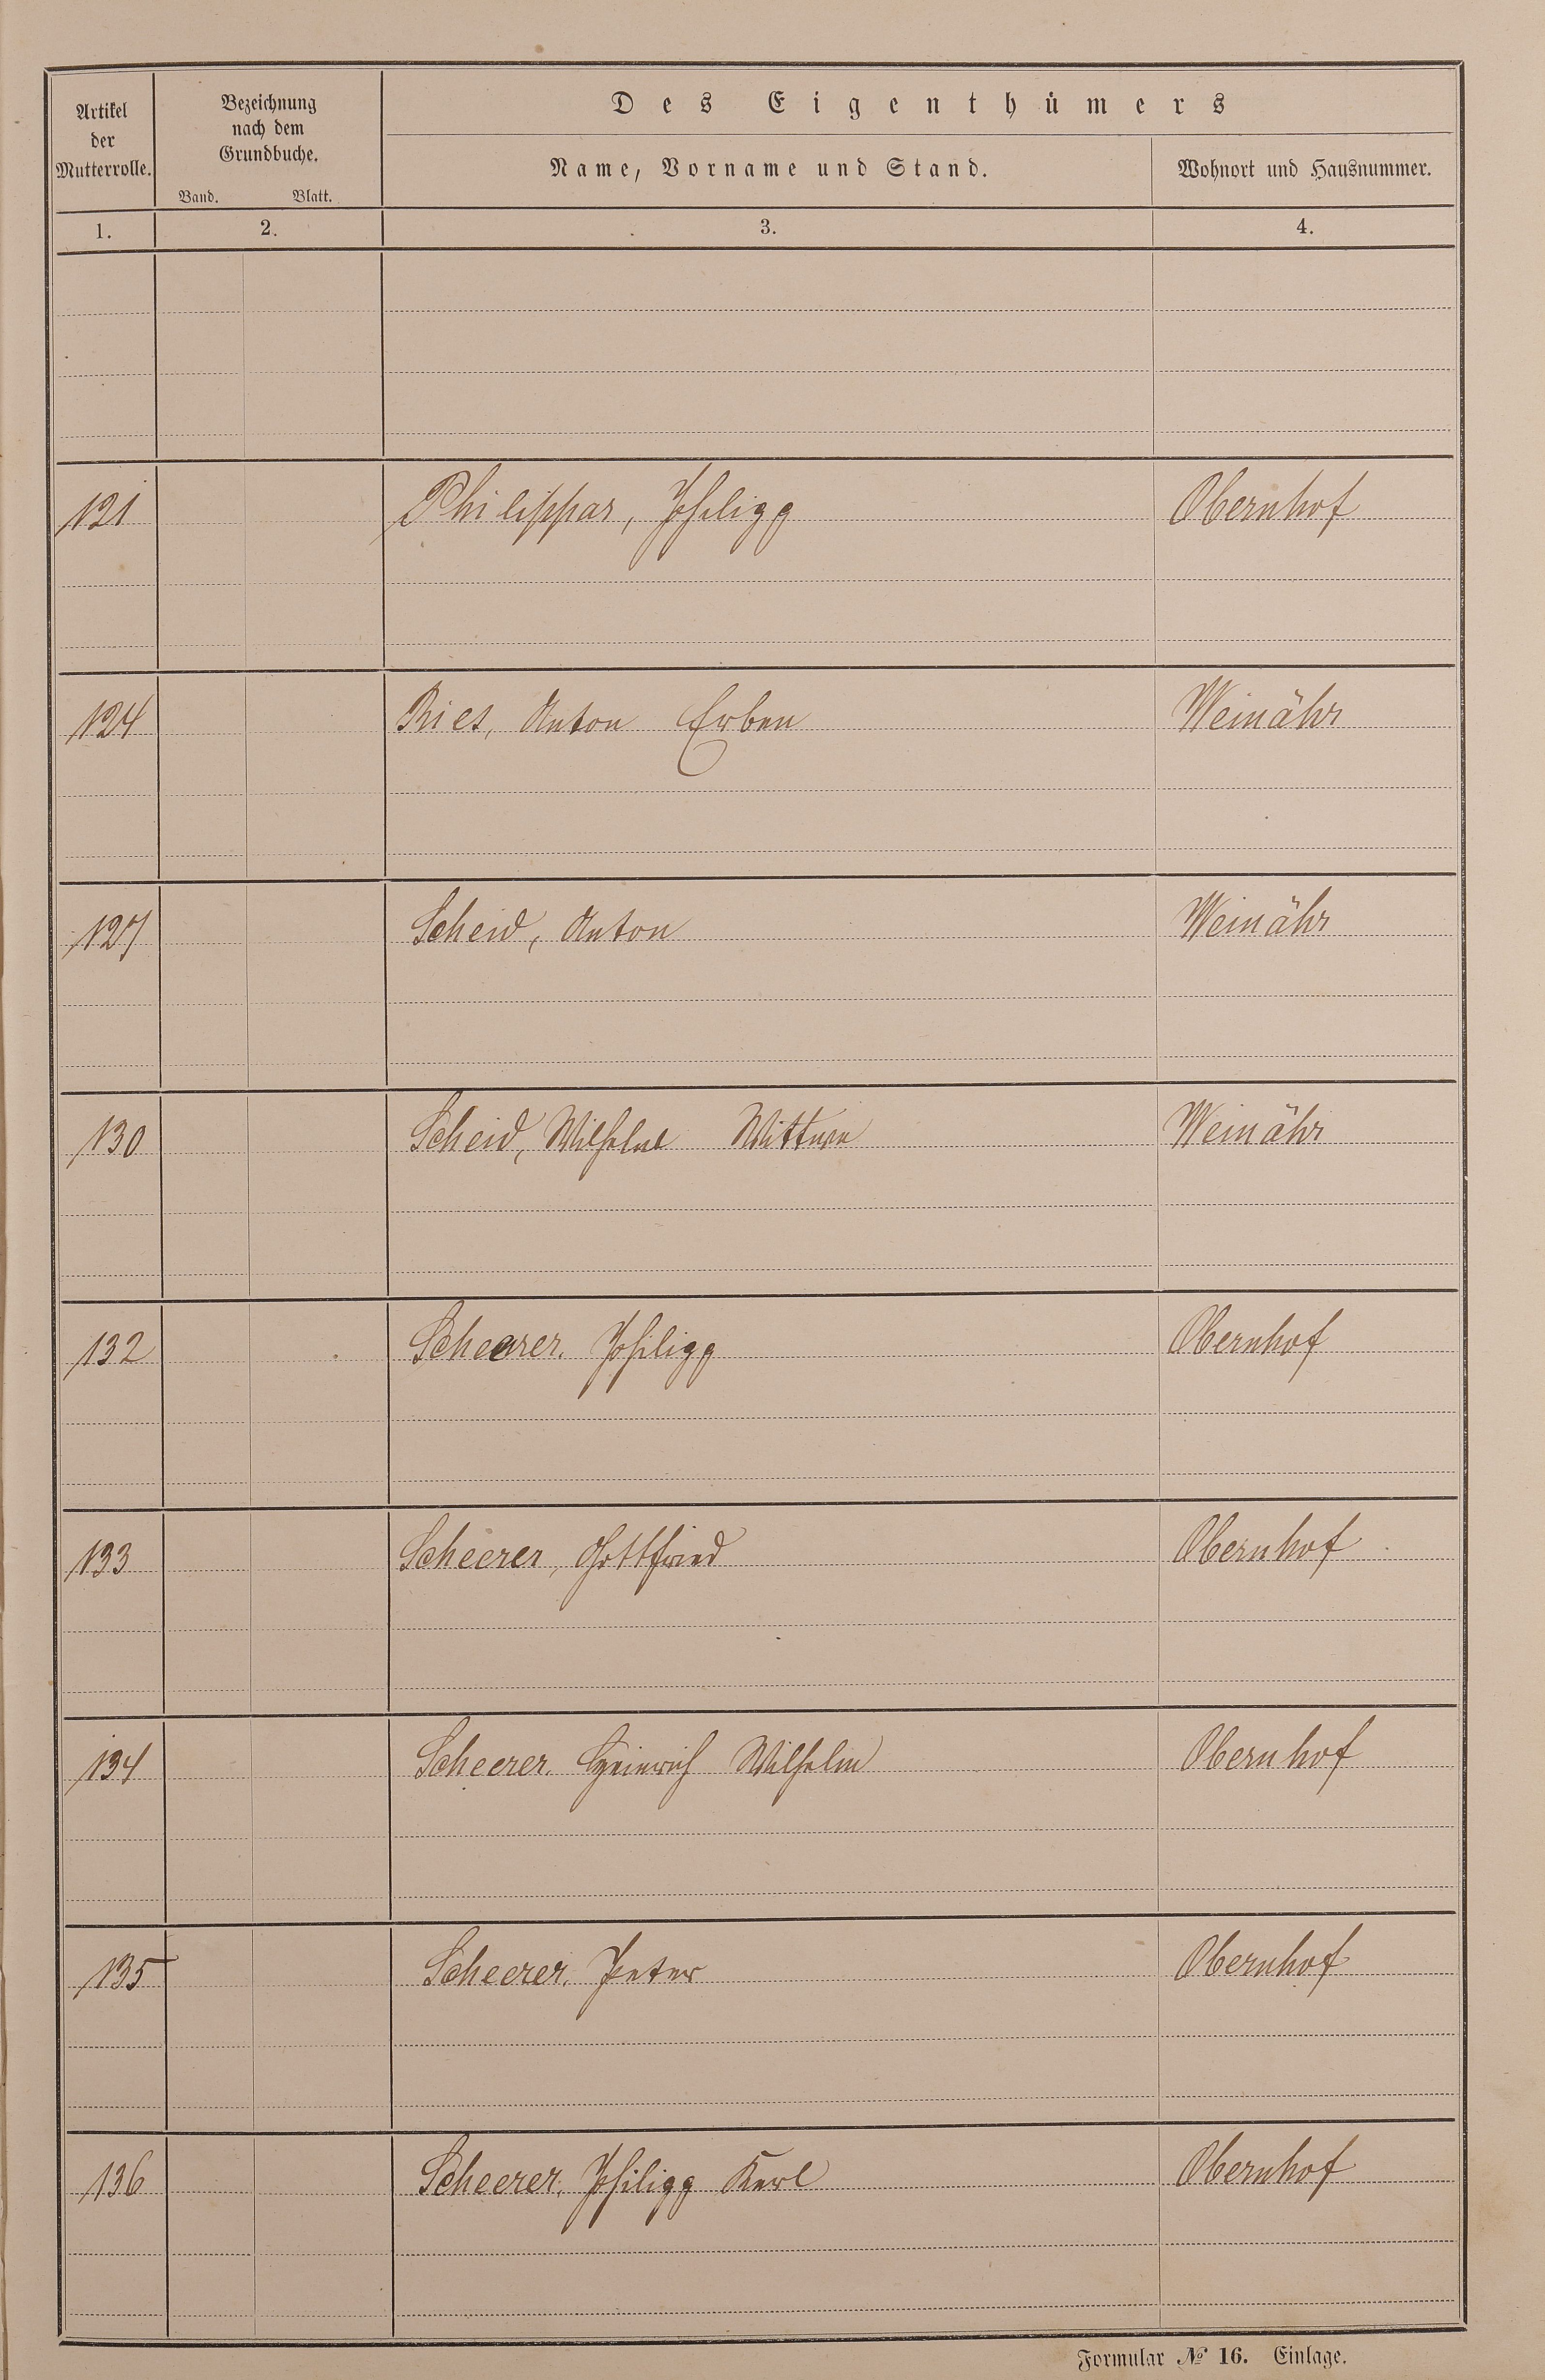 Artikel der Mutterrolle.
Bezeichnung nach dem Grundbuche.
Band. Blatt.
Des Eigenthümers
Name, Vorname und Stand.
Wohnort und Hausnummer.
1. 2. 3. 4.
121 Philippar, Philipp Obernhof
124 Ries, Anton Erben Weinähr
127 Scheid, Anton Weinähr
130 Scheid, Wilhelm Wittwe Weinähr
132 Scheerer, Philipp Obernhof
133 Scheerer, Gottfried Obernhof
134 Scheerer, Heinrich Wilhelm Obernhof
135 Scheerer, Peter Obernhof
136 Scheerer, Philipp Karl Obernhof
Formular № 16. Einlage.